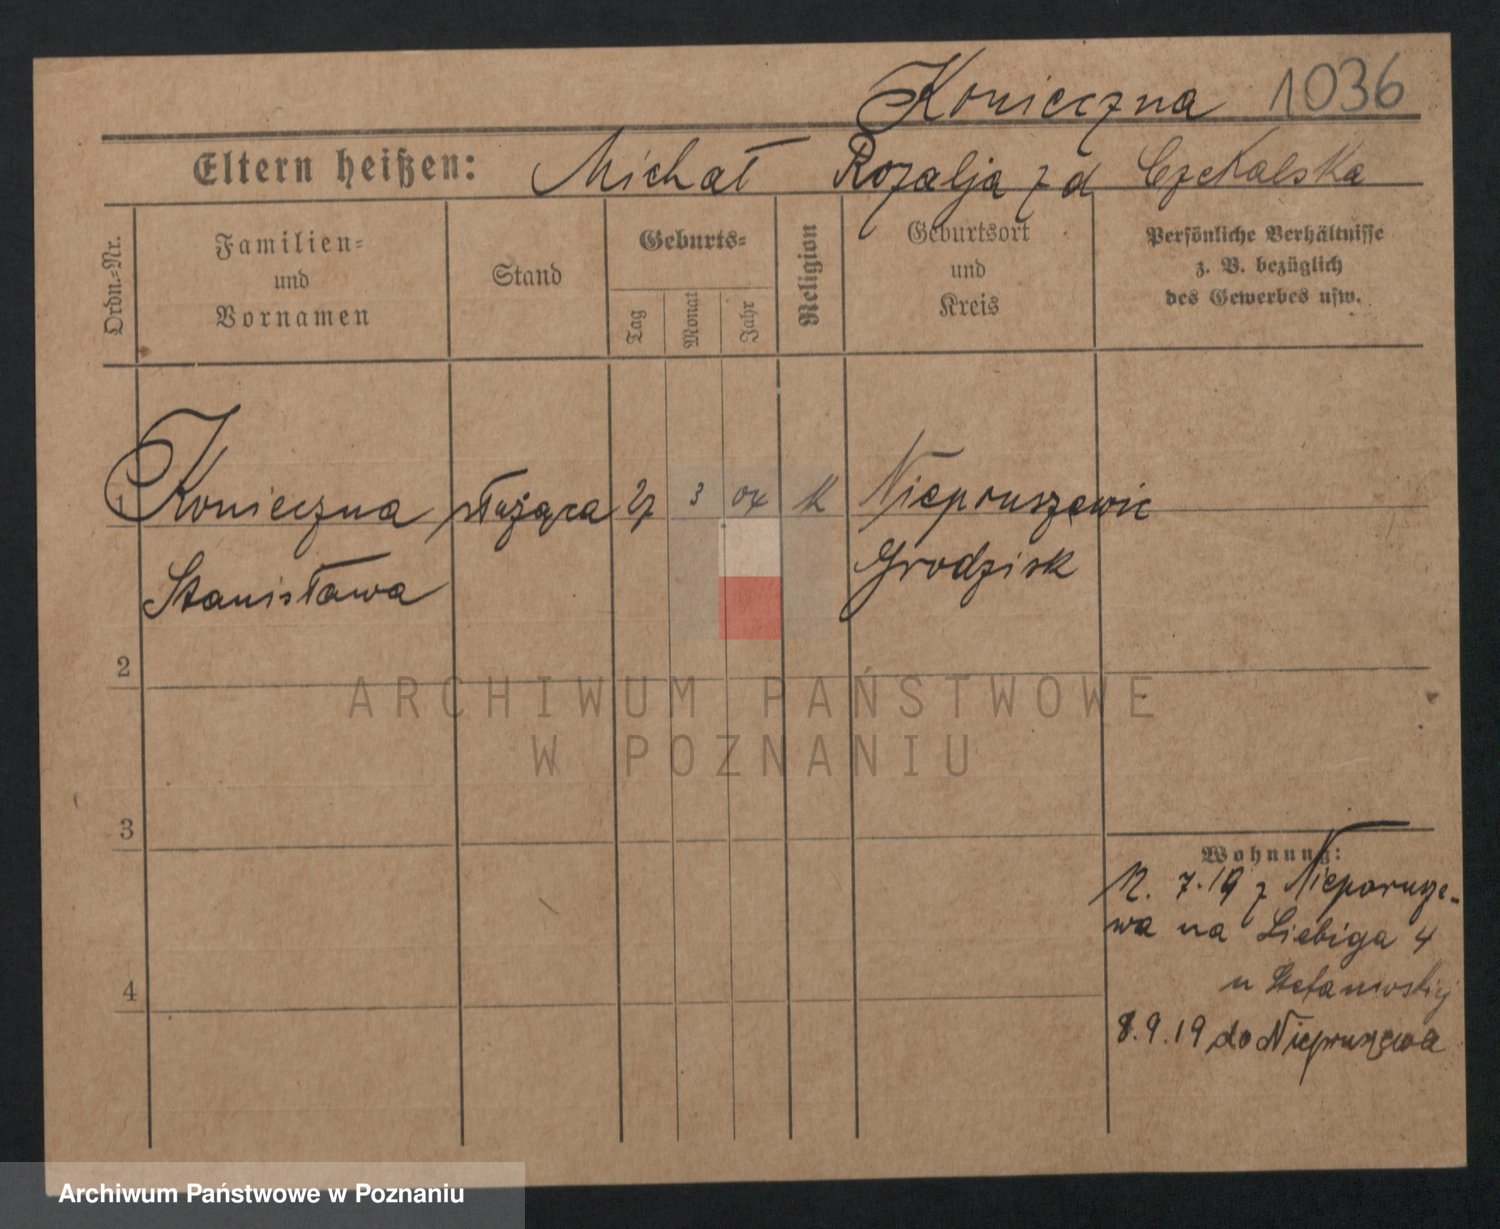 Konieczna 1036
Eltern heißen: Michał Rozalja z d Czekalska
Ordn.=Nr.
Familien=
und
Vornamen
Stand
Geburts=
Tag
Monat
Jahr
Religion
Geburtsort
und
Kreis
Persönliche Verhältnisse
z. B. bezüglich
des Gewerbes usw.
1 Konieczna służąca 27 3 04 k Niepruszewie
Stanisława Grodzisk
2
3
4
Wohnung:
12. 7.19 z Nieprusze-
wa na Liebiga 4
u Stefanowskiej
8.9.19 do Niepruszewa
ARCHIWUM PAŃSTWOWE
W POZNANIU
Archiwum Państwowe w Poznaniu